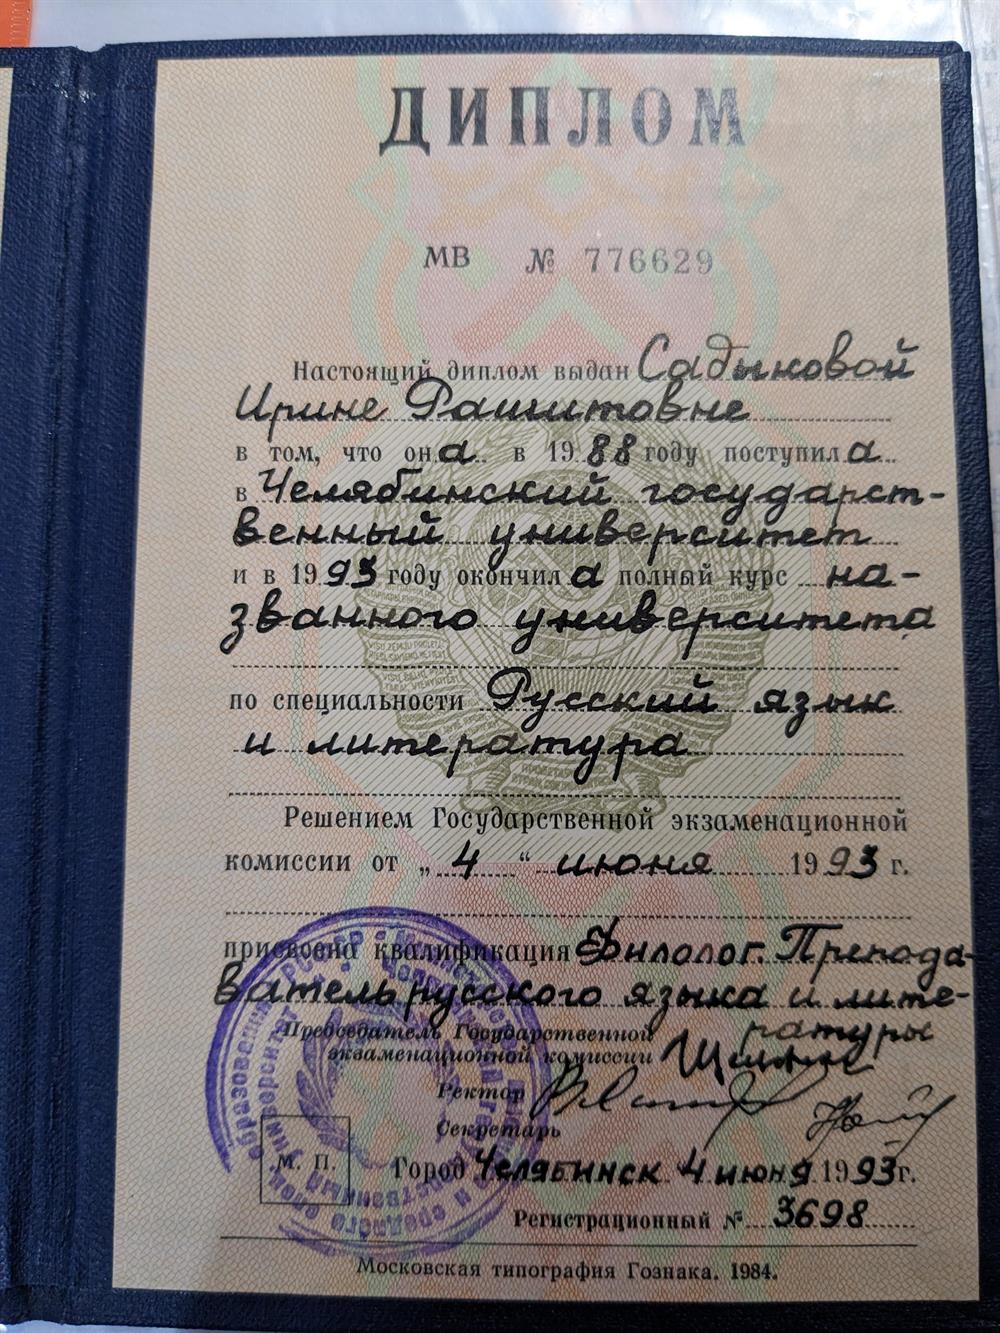 ДИПЛОМ
МВ № 776629
Настоящий диплом выдан Садыковой
Ирине Рашитовне
в том, что она в 1988 году поступила
в Челябинский государст-
венный университет
и в 1993 году окончила полный курс на-
званного университета
по специальности Русский язык
и литература
Решением Государственной экзаменационной
комиссии от „4“ июня 1993 г.
присвоена квалификация Филолог. Препода-
ватель русского языка и лите-
ратуры
Председатель Государственной
экзаменационной комиссии
Ректор
Секретарь
М. П.
Город Челябинск 4 июня 1993 г.
Регистрационный № 3698
Московская типография Гознака. 1984.